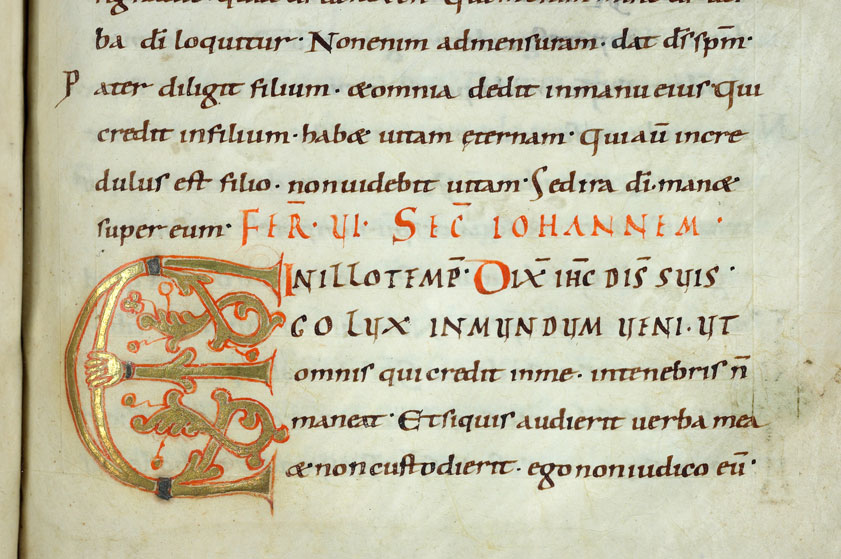 ba dī loquitur · Nonenim admensuram · dat d̄s sp̄m ·
Pater diligit filium · &omnia dedit inmanu eius · Qui
credit infilium · hab& uitam ęternam · Quiaū incre
dulus est filio · nonuidebit uitam · Sedira dī · man&
super eum · FER̄ · VI · SEC̄ IOHANNEM ·
INILLOTEMP̄ · DIX̄ IH̄C DIS̄ SUIS ·
EGO LUX INMUNDUM UENI · UT
omnis qui credit inme · intenebris n̄
maneat · Etsiquis audierit uerba mea
& noncustodierit · egononiudico eū ·